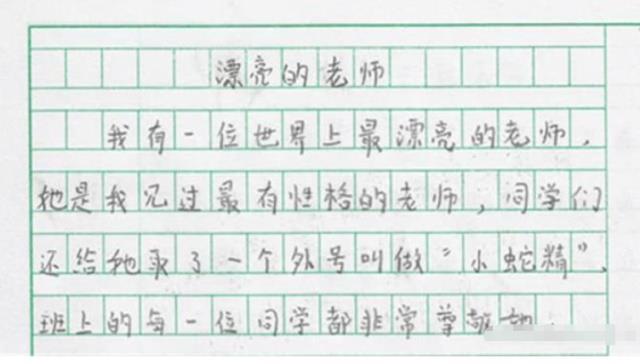 漂亮的老师
我有一位世界上最漂亮的老师.
她是我见过最有性格的老师,同学们
还给她取了一个外号叫做"小蛇精".
班上的每一位同学都非常尊敬她.